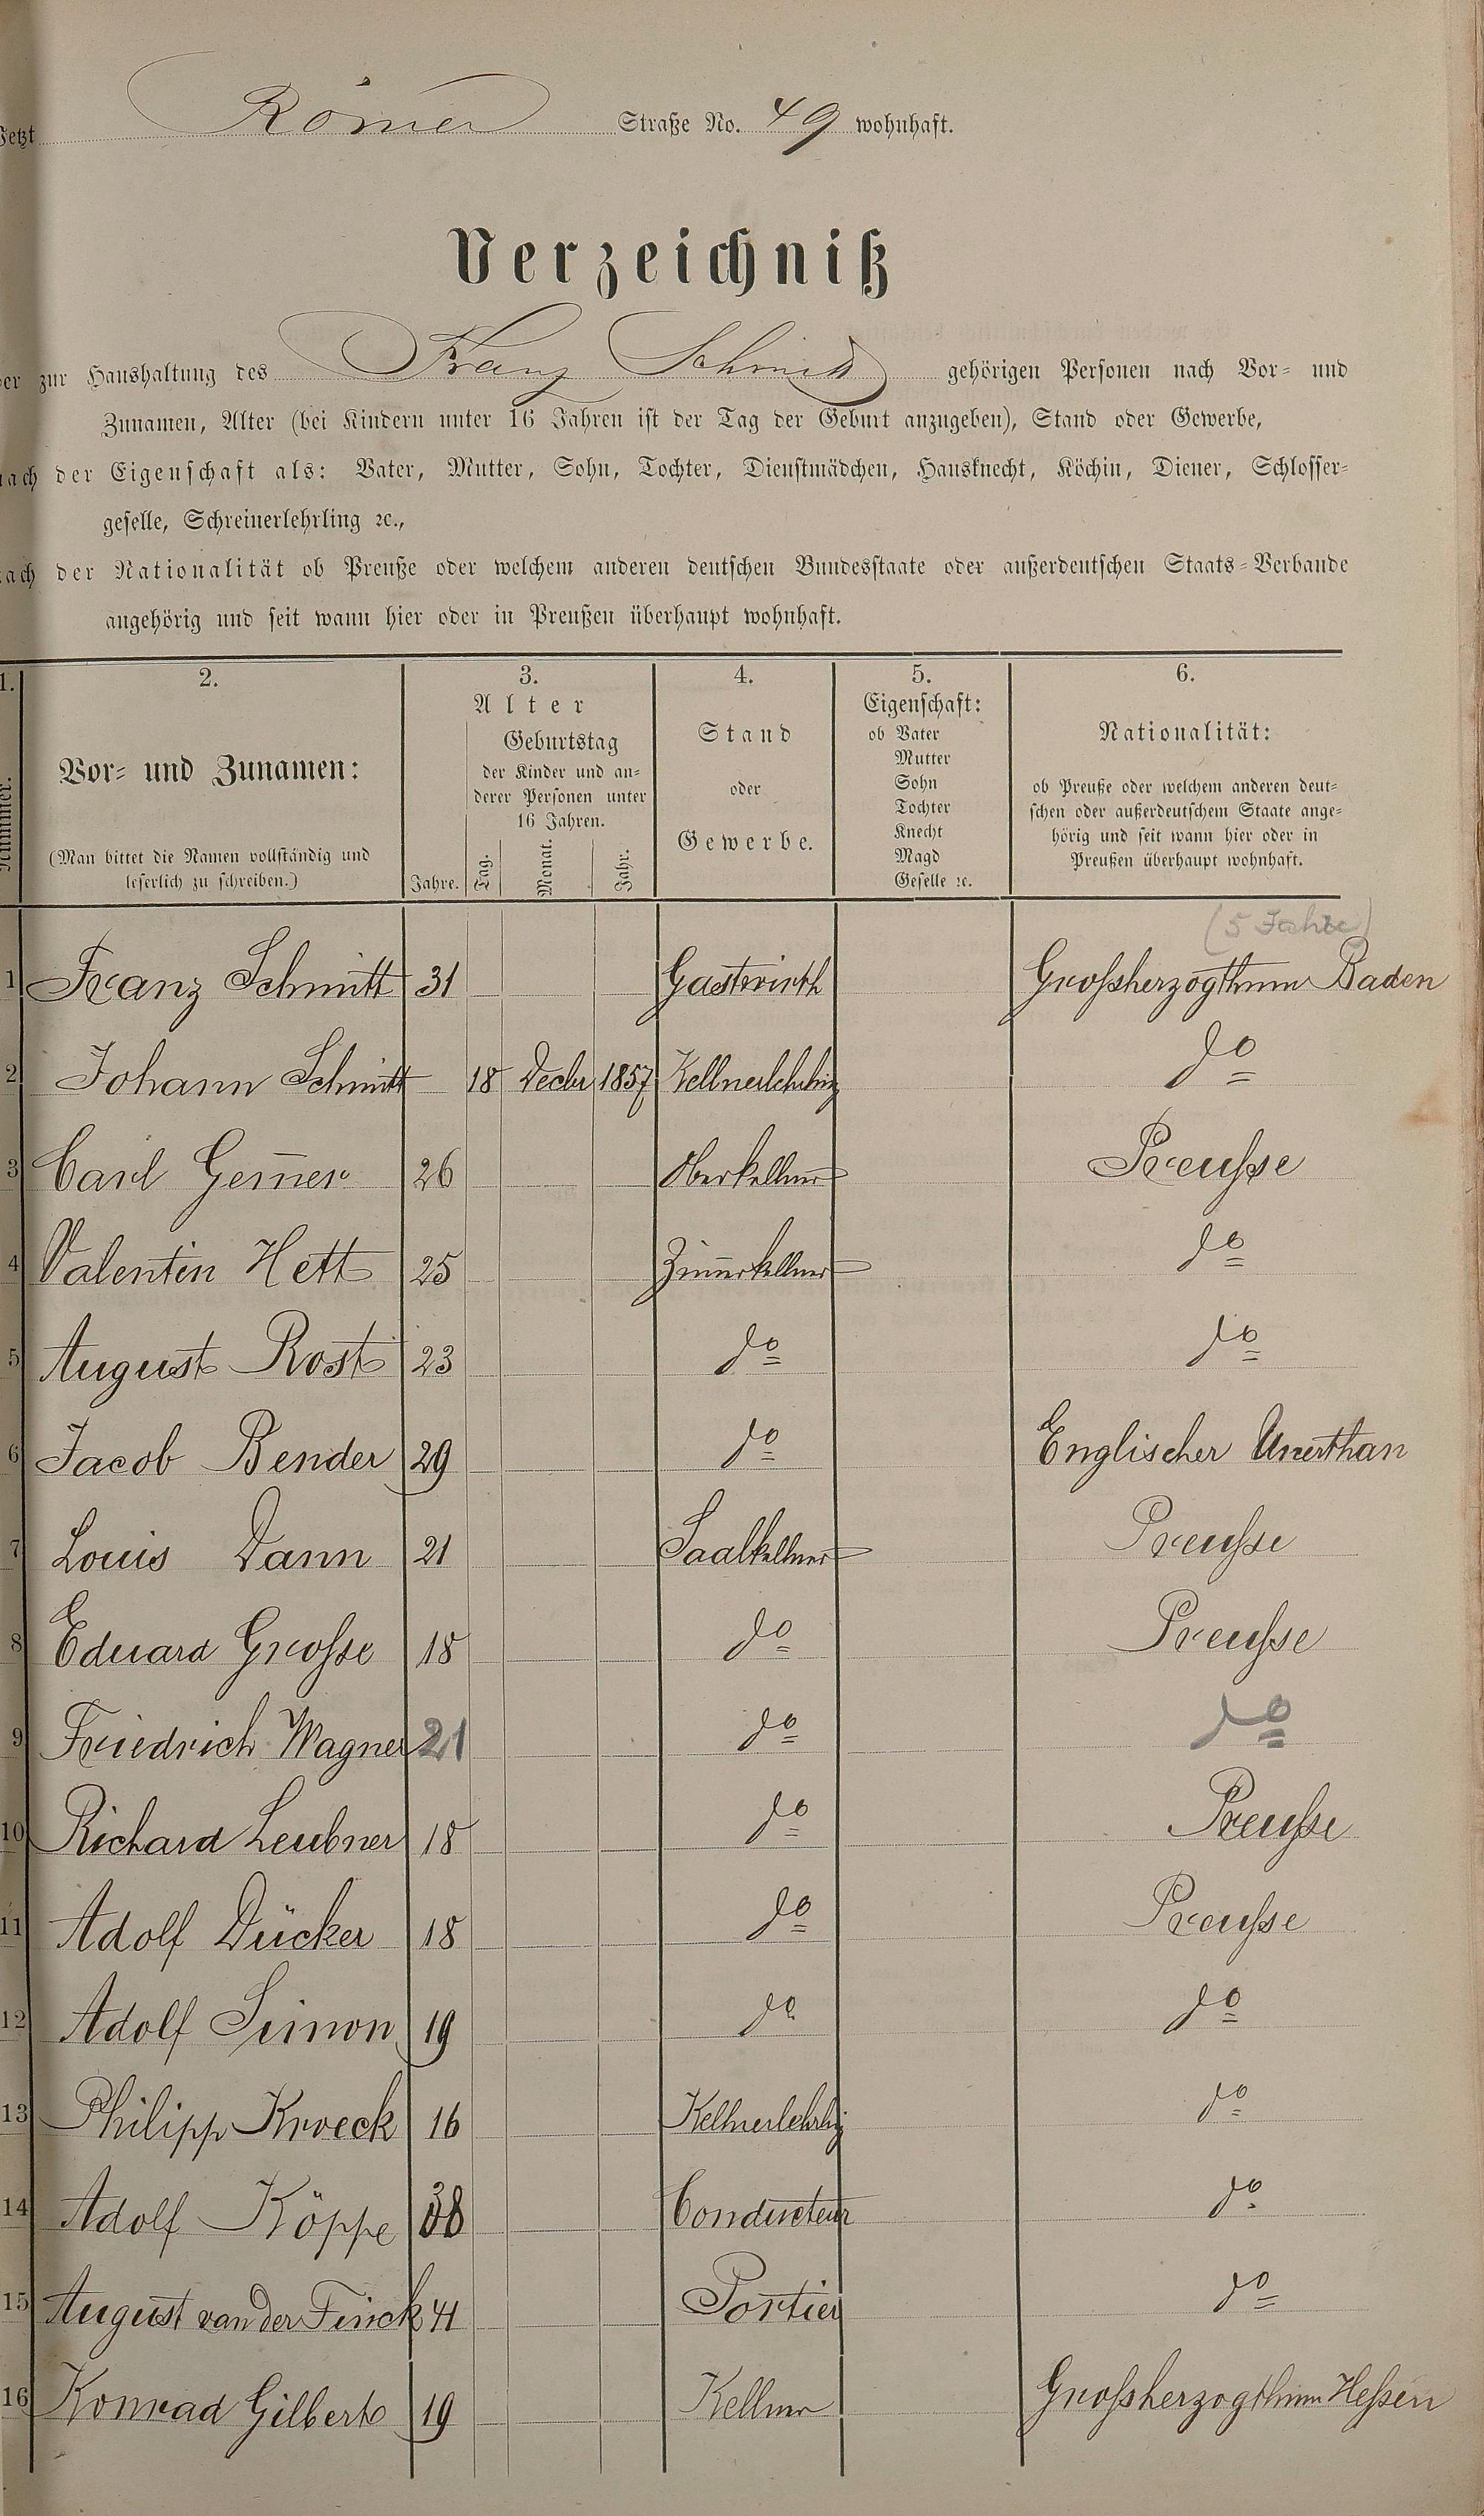 Jetzt Römer Straße No. 49 wohnhaft.
Verzeichniß
der zur Haushaltung des Franz Schmitt gehörigen Personen nach Vor- und
Zunamen, Alter (bei Kindern unter 16 Jahren ist der Tag der Geburt anzugeben), Stand oder Gewerbe,
nach der Eigenschaft als: Vater, Mutter, Sohn, Tochter, Dienstmädchen, Hausknecht, Köchin, Diener, Schlosser-
geselle, Schreinerlehrling ꝛc.,
nach der Nationalität ob Preuße oder welchem anderen deutschen Bundesstaate oder außerdeutschen Staats-Verbande
angehörig und seit wann hier oder in Preußen überhaupt wohnhaft.
1. 2. 3. 4. 5. 6.
Nummer.
Vor- und Zunamen:
(Man bittet die Namen vollständig und
leserlich zu schreiben.)
Alter
Geburtstag
der Kinder und an-
derer Personen unter
16 Jahren.
Jahre. Tag. Monat. Jahr.
Stand
oder
Gewerbe.
Eigenschaft:
ob Vater
Mutter
Sohn
Tochter
Knecht
Magd
Geselle ꝛc.
Nationalität:
ob Preuße oder welchem anderen deut-
schen oder außerdeutschem Staate ange-
hörig und seit wann hier oder in
Preußen überhaupt wohnhaft.
(5 Jahre)
1 Franz Schmitt 31 Gastwirth Großherzogthum Baden
2 Johann Schmitt 18 Decbr 1857 Kellnerlehrling do
3 Carl Gem̅er 26 Oberkellner Preußse
4 Valentin Hett 25 Zim̅erkellner do
5 August Rost 23 do do
6 Jacob Bender 29 do Englischer Unerthan
7 Louis Dann 21 Saalkellner Preuße
8 Eduard Große 18 do Preußse
9 Friedrich Wagner 21 do do
10 Richard Leubner 18 do Preuße
11 Adolf Dücker 18 do Preußse
12 Adolf Simon 19 do do
13 Philipp Kroeck 16 Kellnerlehrling do
14 Adolf Köppe 38 Conducteur do
15 August van der Finck 41 Portier do
16 Konrad Gilbert 19 Kellner Großherzogthum Heßen